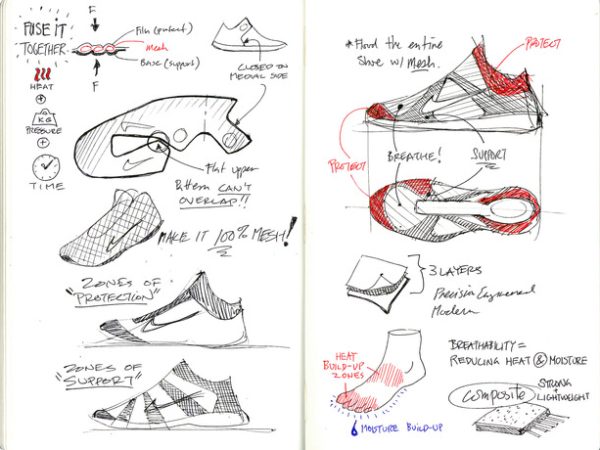 FUSE IT
TOGETHER
HEAT
+
KG
PRESSURE
+
TIME
F
Film (protect)
Mesh
Base (support)
F
CLOSED ON
MEDIAL SIDE
Flat upper
Pattern CAN'T
OVERLAP!!
MAKE IT 100% MESH!
ZONES OF
"PROTECTION"
ZONES OF
"SUPPORT"
* Flood the entire
Shoe w/ Mesh.
PROTECT
PROTECT
BREATHE!
SUPPORT
3 LAYERS
Precision Engineered
Modern
HEAT
BUILD-UP
ZONES
MOISTURE BUILD-UP
BREATHABILITY =
REDUCING HEAT & MOISTURE
Composite
STRONG
+
LIGHTWEIGHT